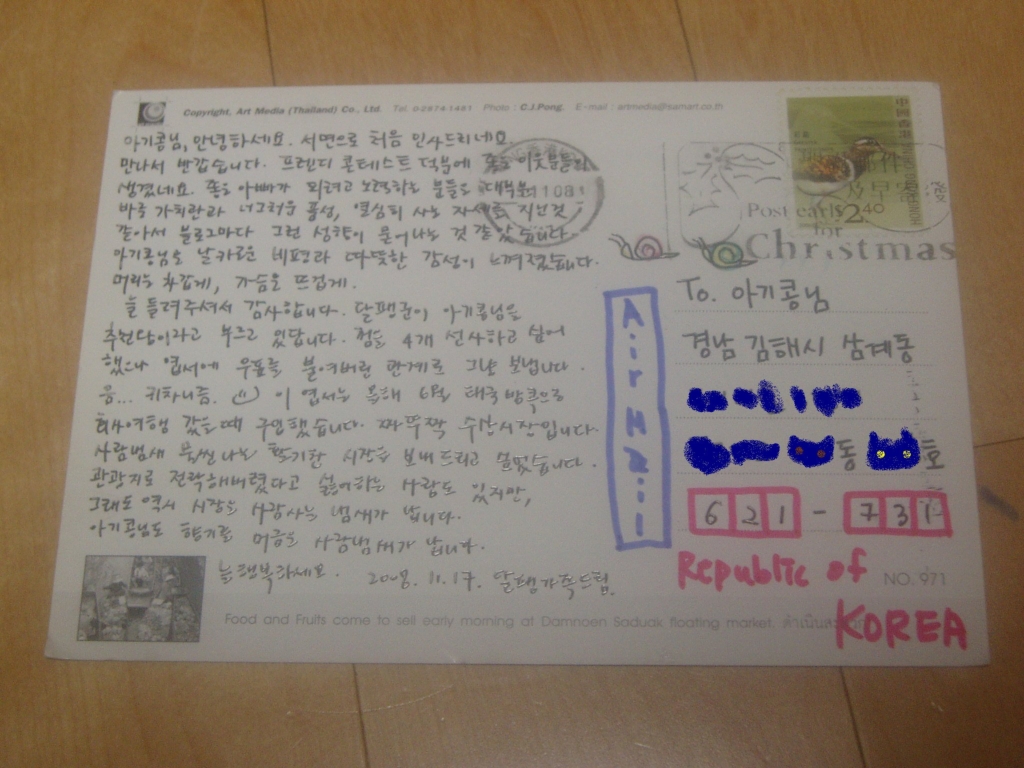 Copyright, Art Media (Thailand) Co., Ltd. Tel. 0-2974-1461 Photo : C.J.Pong. E-mail : artmedia@samart.co.th
아기콩님, 안녕하세요. 서면으로 처음 인사드리네요
만나서 반갑습니다. 프렌디 콘테스트 덕분에 좋은 이웃분들이
생겼네요. 좋은 아빠가 되려고 노력하는 분들은 대부분
바른 가치관과 너그러운 품성, 열심히 사는 자세를 지닌것
같아서 블로그마다 그런 성향이 묻어나는 것 같았습니다.
아기콩님은 날카로운 비평과 따뜻한 감성이 느껴졌습니다.
머리는 차갑게, 가슴은 뜨겁게.
늘 들려주셔서 감사합니다. 달팽군이 아기콩님을
추천답이라고 부르고 있답니다. 컴을 4개 선사하고 싶어
했으나 엽서에 우표를 붙여버린 관계로 그냥 보냅니다.
음... 귀차니즘. 이 엽서는 올해 6월 태국 방콕으로
회사여행 갔을때 구입했습니다. 짜뚜짝 수상시장입니다.
사람냄새 물씬 나는 활기찬 시장을 보내드리고 싶었습니다.
관광지로 전락해버렸다고 싫어하는 사람도 있지만,
그래도 역시 시장은 사람사는 냄새가 납니다.
아기콩님도 향기를 머금은 사람냄새가 납니다.
늘 행복하세요. 2008. 11. 17. 달팽가족드림.
Food and Fruits come to sell early morning at Damnoen Saduak floating market.
中國香港
HONG KONG
$2.40
1081
Post early
for
Christmas
Air Mail
To. 아기콩님
경남 김해시 삼계동
동 호
621 - 731
Republic of
KOREA
NO. 971